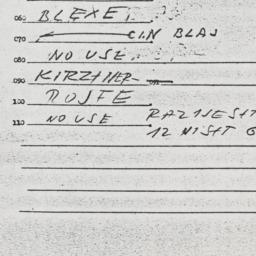 060 BLEXET
070 CIN BLAS
080 NO USE
090 KIRZHNER
100 DOJFE
110 NO USE RAZIJESIT
12 NISIT G